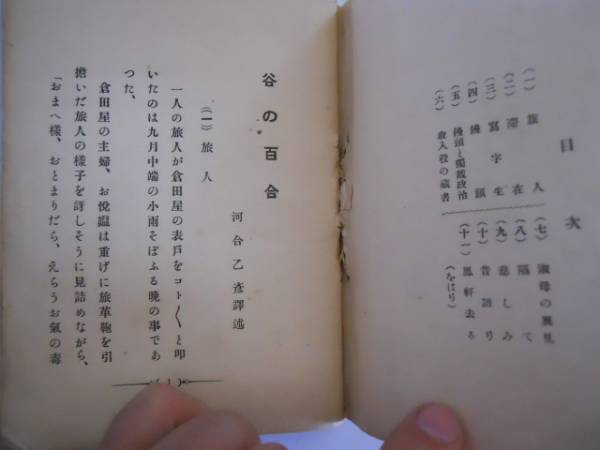 目次
(一) 旅人
(二) 滞在
(三) 寫字生
(四) 饅頭
(五) 饅頭と獨裁政治
(六) 收入役の蔵書
(七) 叔母の異見
(八) 隔て
(九) 悲しみ
(十) 昔語り
(十一) 風軒去る
(をはり)
谷の百合
河合乙彦譯述
(一) 旅人
一人の旅人が倉田屋の表戸をコト〳〵と叩
いたのは九月中端の小雨そぼふる晩の事であ
つた、
倉田屋の主婦、お悦媼は重げに旅革鞄を引
擔いだ旅人の樣子を訝しそうに見詰めながら、
「おまへ樣、おとまりだら、えらうお氣の毒
( 1 )